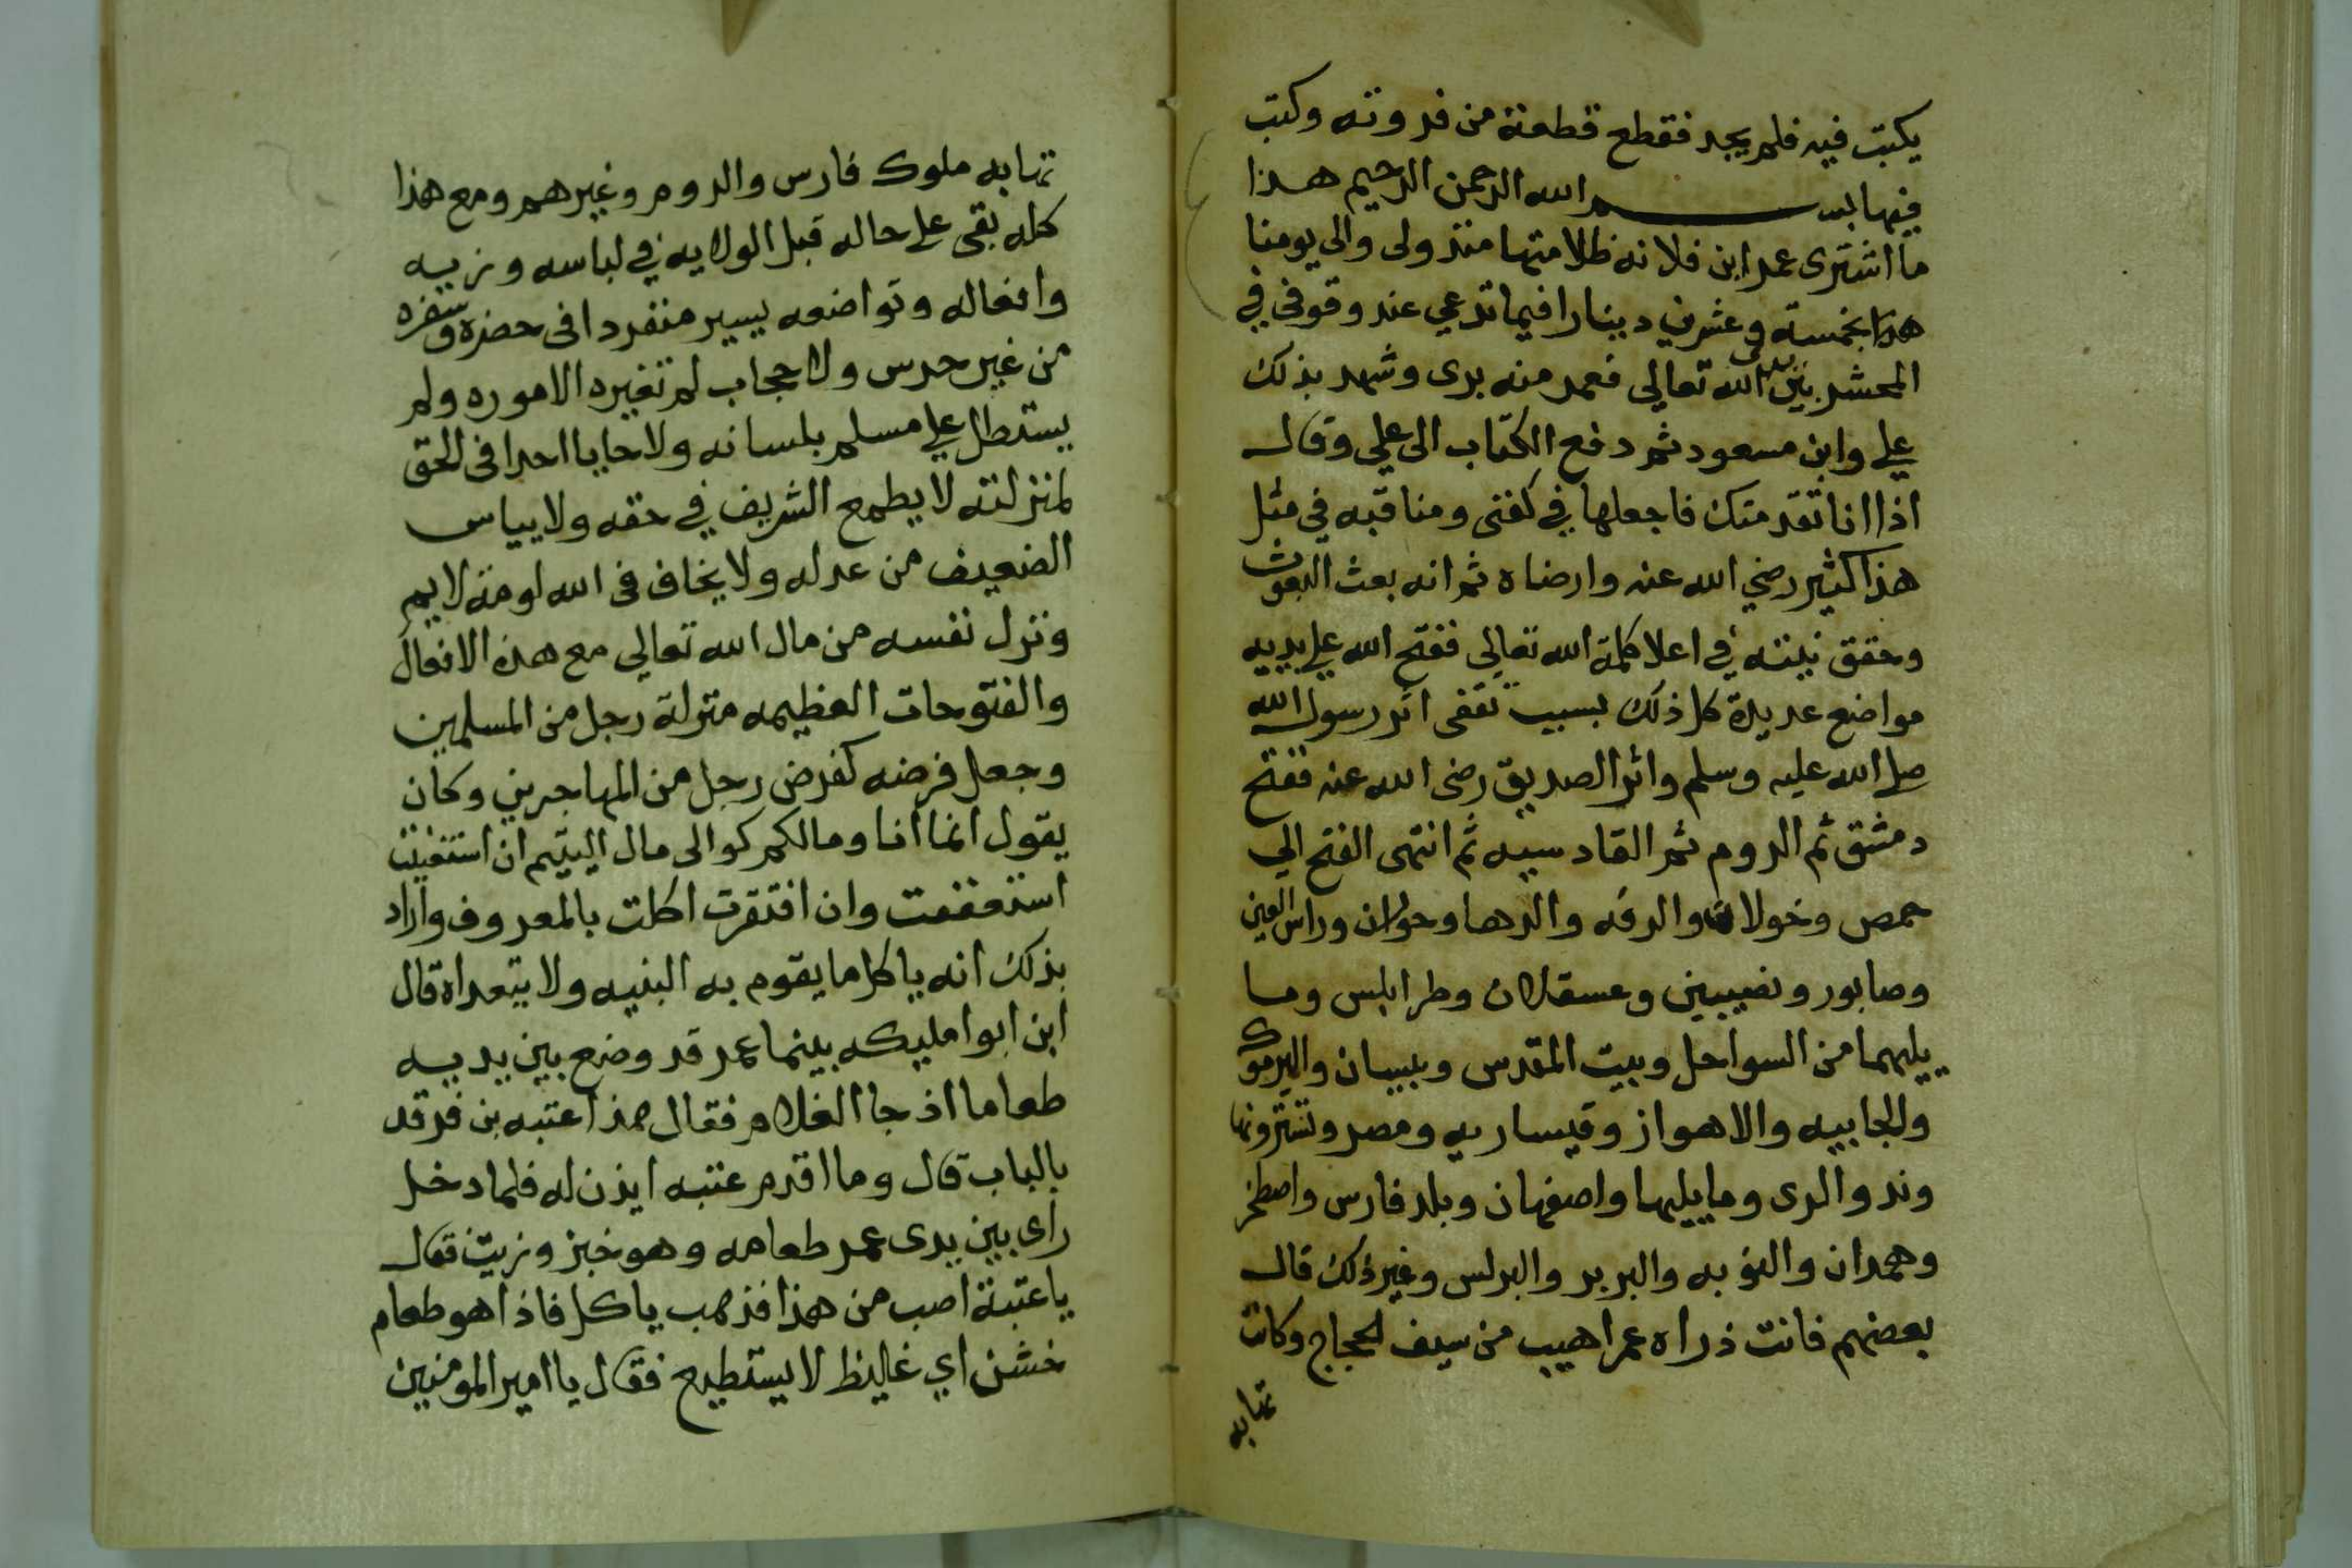 يكبت فيه فلم يجد فقطع قطعة من فروته وكتب
فيها بسم الله الرحمن الرحيم هذا
ما اشترى عمر ابن فلانه ظلامتها منذ ولى والى يومنا
هذا بخمسة وعشرين دينارا فيما تدعي عند وقوفى في
المحشر بين يدى الله تعالى فعمر منه برى وشهد بذلك
علي وابن مسعود ثم دفع الكتاب الى علي وقال
اذا انا تقدمتك فاجعلها في كفنى ومناقبه في مثل
هذا كثير رضي الله عنه وارضاه ثم انه بعث البعوث
وحقق نيته في اعلا كلمة الله تعالى ففتح الله على يديه
مواضع عديدة كل ذلك بسبب تقفى اثر رسول الله
صلى الله عليه وسلم واثر الصديق رضى الله عنه ففتح
دمشق ثم الروم ثم القادسيه ثم انتهى الفتح الي
حمص وخولان والرقه والرها وحران وراس العين
وصابور ونصيبين وعسقلان وطرابلس وما
يليهما من السواحل وبيت المقدس وبيسان واليرموك
والجابيه والاهواز وقيساريه ومصر وتستر ونها
وند والرى وما يليها واصفهان وبلد فارس واصطخر
وهمدان والنوبه والبربر والبرلس وغير ذلك قال
بعضهم فانت ذراه عمر اهيب من سيف الحجاج وكانت
تهابه
تهابه ملوك فارس والروم وغيرهم ومع هذا
كله بقى على حاله قبل الولايه في لباسه وزييه
وافعاله وتواضعه يسير منفردا فى حضره وسفره
من غير حرس ولا حجاب لم تغيره الاموره ولم
يستطل على مسلم بلسانه ولا حابا احدا فى الحق
لمنزلته لا يطمع الشريف في حقه ولا يياس
الضعيف من عدله ولا يخاف فى الله لومة لايم
ونزل نفسه من مال الله تعالي مع هذه الافعال
والفتوحات العظيمه منزلة رجل من المسلمين
وجعل فرضه كفرض رجل من المهاجرين وكان
يقول انما انا ومالكم كوالى مال اليتيم ان استغنيت
استعففت وان افتقرت اكلت بالمعروف واراد
بذلك انه ياكل ما يقوم به البنيه ولا يتعداه قال
ابن ابوا مليكه بينما عمر قد وضع بين يديه
طعاما اذ جا الغلام فقال هذا عتبه بن فرقد
بالباب قال وما اقدم عتبه ايذن له فلما دخل
راى بين يدى عمر طعامه وهو خبز وزيت قال
يا عتبة اصب من هذا فذهب ياكل فاذا هو طعام
خشن اي غاليظ لا يستطيع فقال يا امير المومنين